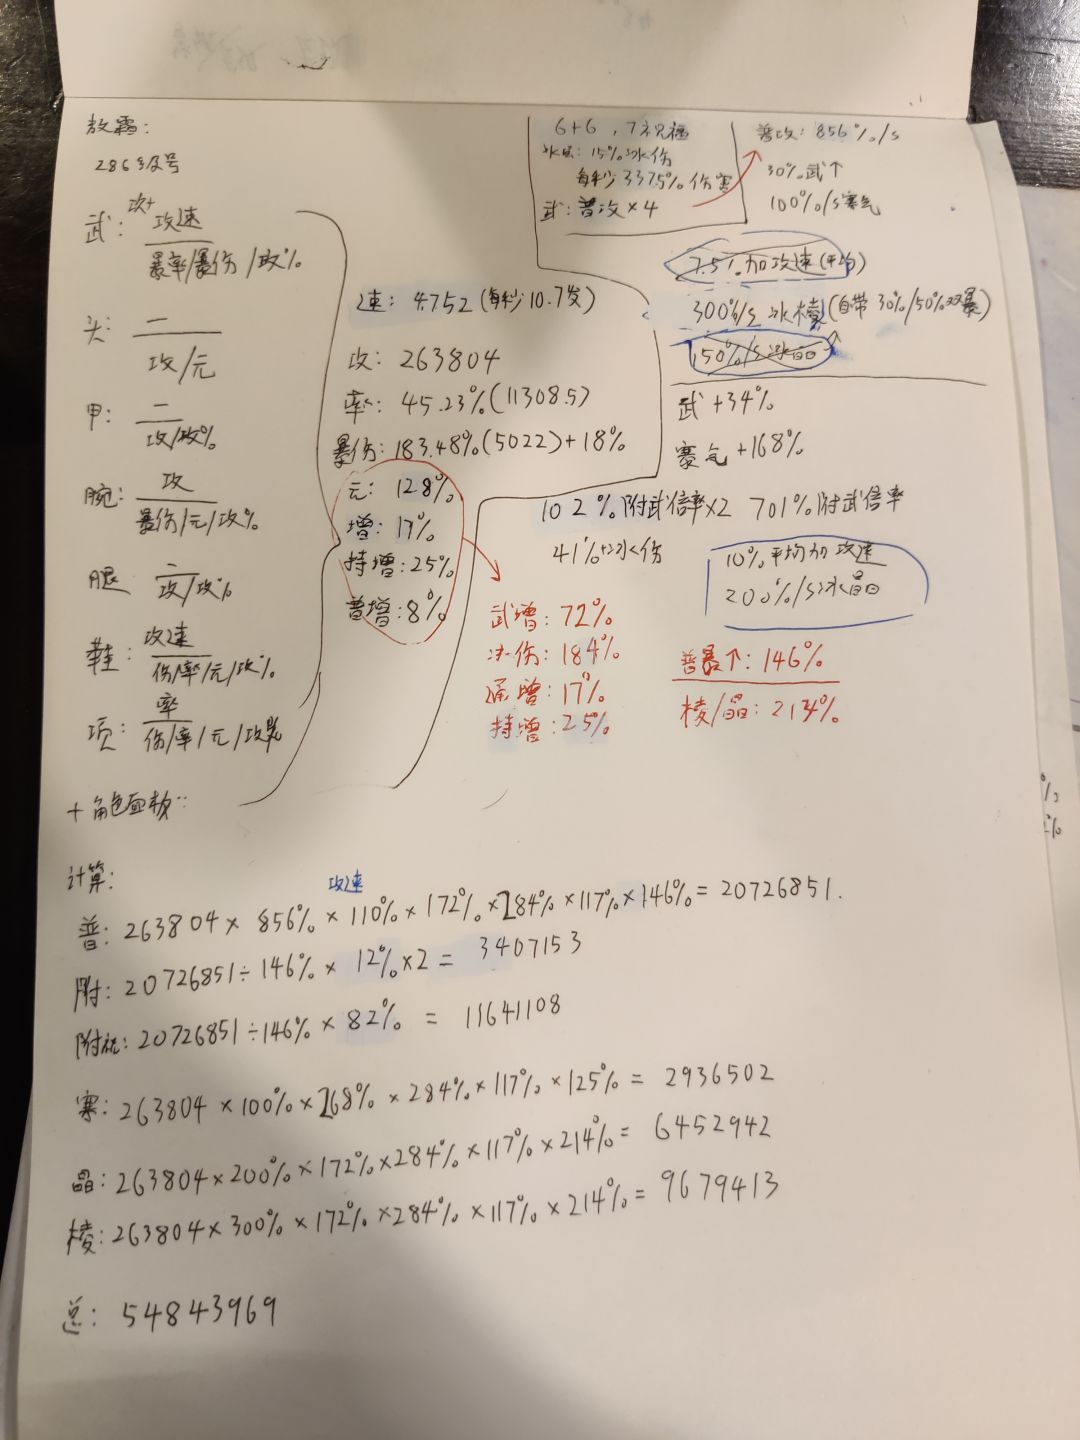 敖霜:
286级号
武: 攻+ 攻速
暴率/暴伤/攻%
头: 一
攻/元
甲: 一
攻/攻%
腕: 攻
暴伤/元/攻%
腿 一
攻/攻%
鞋: 攻速
伤/率/元/攻%
项: 率
伤/率/元/攻%
+角色面板:
速: 4752 (每秒10.7发)
攻: 263804
率: 45.23% (11308.5)
暴伤: 183.48% (5022)+18%
元: 128%
增: 17%
持增: 25%
普增: 8%
6+6, 7祝福
15%冰伤
每秒3375%伤害
武: 普攻×4
普攻: 856%/s
30%武↑
100%/s寒气
7.5%加攻速(平均)
300%/s冰棱(自带30%/50%双暴)
150%/s冰晶
武+34%
寒气+168%
102%附武倍率×2 701%附武倍率
41%冰伤
10%平均加攻速
200%/s冰晶
武增: 72%
冰伤: 184%
通增: 17%
持增: 25%
普暴↑: 146%
棱/晶: 214%
计算:
攻速
普: 263804×856%×110%×172%×284%×117%×146%=20726851.
附: 20726851÷146%×12%×2= 3407153
附祝: 20726851÷146%×82% = 11641108
寒: 263804×100%×268%×284%×117%×125%= 2936502
晶: 263804×200%×172%×284%×117%×214%= 6452942
棱: 263804×300%×172%×284%×117%×214%= 9679413
总: 54843969